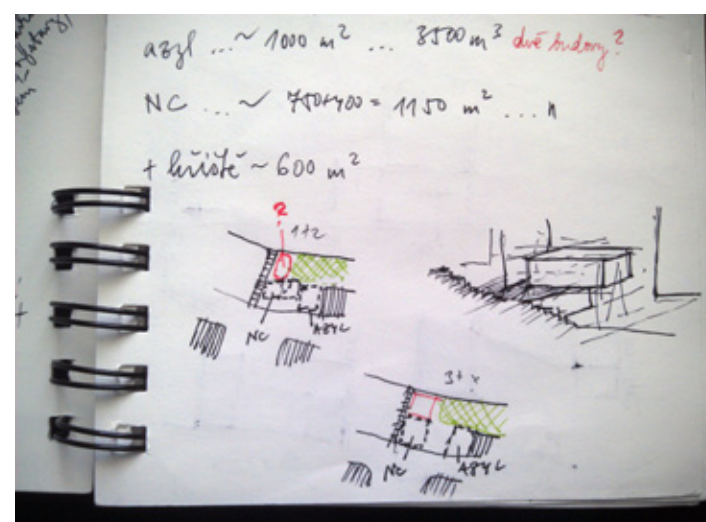 azyl ... ~ 1000 m² ... 3500 m³ dvě budovy?
NC ... ~ 750+400 = 1150 m² ... n
+ hřiště ~ 600 m²
?
1+2
NC
AZYL
3+
NC
AZYL